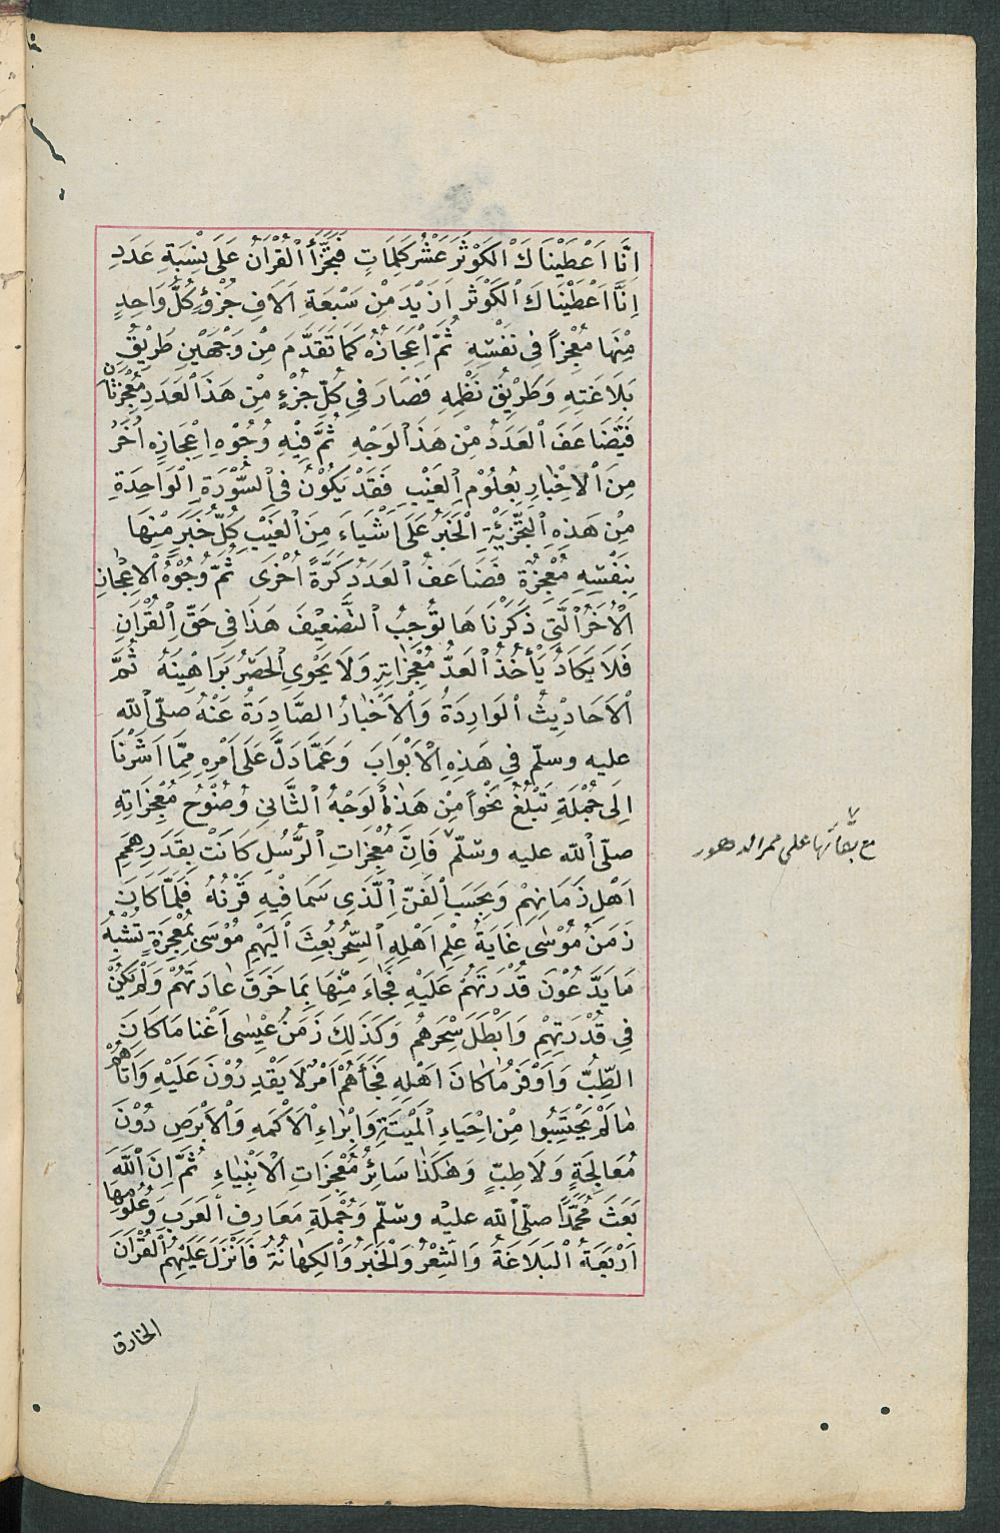 اِنَّا اَعْطَيْنَاكَ الْكَوْثَرَ عَشْرُ كَلِمَاتٍ فَتَجَزَّأَ الْقُرْآنُ عَلَى نِسْبَةِ عَدَدِ
اِنَّا اَعْطَيْنَاكَ الْكَوْثَرَ اَزْيَدَ مِنْ سَبْعَةِ اٰلَافِ جُزْءٍ كُلُّ وَاحِدٍ
مِنْهَا مُعْجِزاً فِي نَفْسِهِ ثُمَّ اِعْجَازُهُ كَمَا تَقَدَّمَ مِنْ وَجْهَيْنِ طَرِيْقِ
بَلَاغَتِهِ وَطَرِيْقِ نَظْمِهِ فَصَارَ فِي كُلِّ جُزْءٍ مِنْ هَذَا الْعَدَدِ مُعْجِزَتَانِ
فَيُضَاعَفُ الْعَدَدُ مِنْ هَذَا الْوَجْهِ ثُمَّ فِيْهِ وُجُوْهِ اِعْجَازِهِ اُخَرُ
مِنَ الْاِخْبَارِ بِعُلُوْمِ الْغَيْبِ فَقَدْ يَكُوْنُ فِي السُّوْرَةِ الْوَاحِدَةِ
مِنْ هَذِهِ التَّجْزِيَةِ الْخَبَرُ عَلَى اَشْيَاءَ مِنَ الْغَيْبِ كُلُّ خَبَرٍ مِنْهَا
بِنَفْسِهِ مُعْجِزَةٌ فَضَاعَفَ الْعَدَدُ كَرَّةً اُخْرَى ثُمَّ وُجُوْهُ الْاِعْجَازِ
الْاُخَرُ الَّتِي ذَكَرْنَاهَا تُوْجِبُ التَّضْعِيْفَ هَذَا فِي حَقِّ الْقُرْآنِ
فَلَا يَكَادُ يَأْخُذُ الْعَدُّ مُعْجِزَاتِهِ وَلَا يَحْوِي الْحَصْرُ بَرَاهِيْنَهُ ثُمَّ
الْاَحَادِيْثُ الْوَارِدَةُ وَالْاَخْبَارُ الصَّادِرَةُ عَنْهُ صلّى اللّه
عليه وسلّم فِي هَذِهِ الْاَبْوَابَ وَعَمَّا دَلَّ عَلَى اَمْرِهِ مِمَّا اَشَرْنَا
اِلَى جُمْلَةٍ تَبْلُغُ نَحْواً مِنْ هَذَا الْوَجْهُ الثَّانِي وُضُوْحُ مُعْجِزَاتِهِ
صلّى اللّه عليه وسلّم فَاِنَّ مُعْجِزَاتِ الرُّسُلِ كَانَتْ بِقَدَرِ هِمَمِ
مع بقائها على ممر الدهور
اَهْلِ زَمَانِهِمْ وَبِحَسَبِ الْفَنِّ الَّذِي سَمَا فِيْهِ قَرْنُهُ فَلَمَّا كَانَ
زَمَنُ مُوْسٰى غَايَةُ عِلْمِ اَهْلِهِ السِّحْرُ بُعِثَ اِلَيْهِمْ مُوْسَى بِمُعْجِزَةٍ تُشْبِهُ
مَا يَدَّعُوْنَ قُدْرَتَهُمْ عَلَيْهِ فَجَاءَ مِنْهَا بِمَا خَرَقَ عَادَتَهُمْ وَلَمْ يَكُنْ
فِي قُدْرَتِهِمْ وَاَبْطَلَ سِحْرَهُمْ وَكَذَلِكَ زَمَنُ عِيْسٰى اَغْنَا مَا كَانَ
الطِّبُّ وَاَوْفَرُ مَا كَانَ اَهْلِهِ فَجَأَهُمْ اَمْرٌ لَا يَقْدِرُوْنَ عَلَيْهِ وَاَتَاهُمْ
مَا لَمْ يَحْتَسِبُوا مِنْ اِحْيَاءِ الْمَيْتَةِ وَاِبْرَاءِ الْاَكْمَهِ وَالْاَبْرَصِ دُوْنَ
مُعَالِجَةٍ وَلَا طِبٍّ وَهٰكَذَا سَائِرُ مُعْجِزَاتِ الْاَنْبِيَاءِ ثُمَّ اِنَّ اللّٰهَ
بَعَثَ مُحَمَّدًا صلّى اللّه عليه وسلّم وَجُمْلَةِ مَعَارِفِ الْعَرَبِ وَعُلُوْمِهَا
اَرْبَعَةٌ الْبَلَاغَةُ وَالشِّعْرُ وَالْخَبَرُ وَالْكِهَانَةُ فَاَنْزَلَ عَلَيْهِمُ الْقُرْآنَ
الخارق